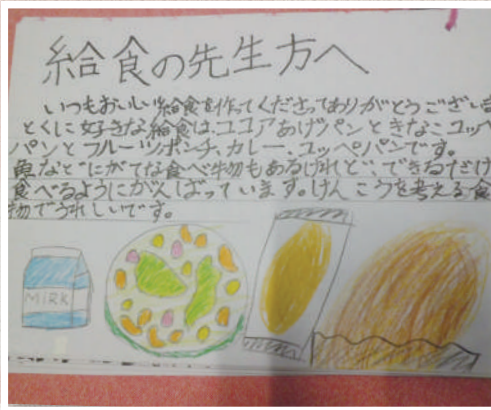 給食の先生方へ
いつもおいしい給食を作ってくださってありがとうござい
とくに好きな給食は、ココアあげパンときなこコッペ
パンとフルーツポンチ、カレー、コッペパンです。
魚などにがてな食べ物もあるけれど、できるだけ
食べるようにがんばっています。けんこうを考える食
物でうれしいです。
MIRK